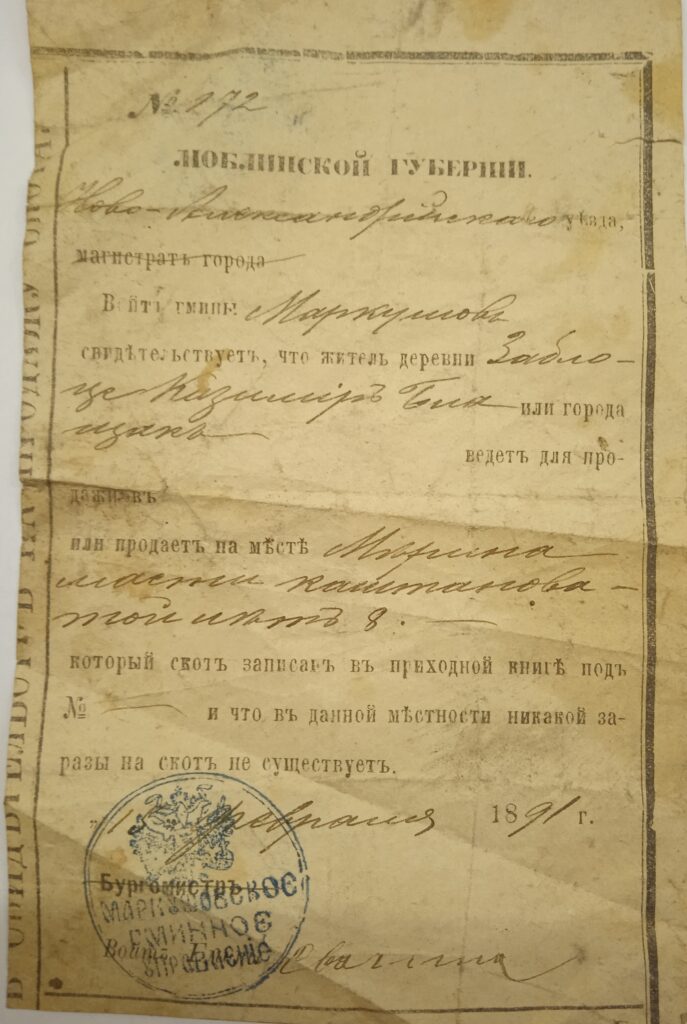 № 272
ЛЮБЛИНСКОЙ ГУБЕРНІИ.
Ново-Александрійскаго уѣзда,
магистратъ города
Войтъ гмины Маркушовъ
свидѣтельствуетъ, что житель деревни Забло-
це Казиміръ или города
ведетъ для про-
дажи въ
или продаетъ на мѣстѣ Мерина
масти каштанова-
той лѣтъ 8.
который скотъ записанъ въ приходной книгѣ подъ
№ — и что въ данной мѣстности никакой за-
разы на скотъ не существуетъ.
февраля 1891 г.
Бургомистръ
МАРКУШОВСКОЕ
ГМИННОЕ
УПРАВЛЕНІЕ
Войтъ Гмины
СВИДѢТЕЛЬСТВО НА ПРОДАЖУ СКОТА